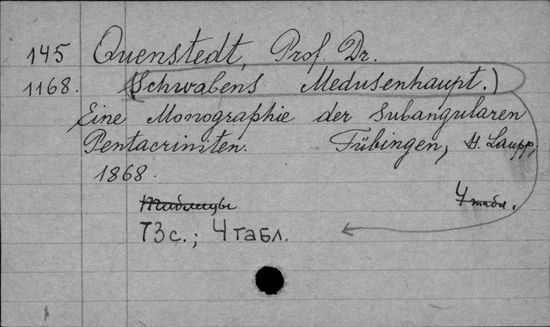 145 Quenstedt, Prof. Dr.
1168. (Schwabens Medusenhaupt.)
Eine Monographie der Subangularen
Pentacriniten. Tübingen, H. Laupp,
1868.
Таблицы 4 табл.
73 с.; 4 табл.